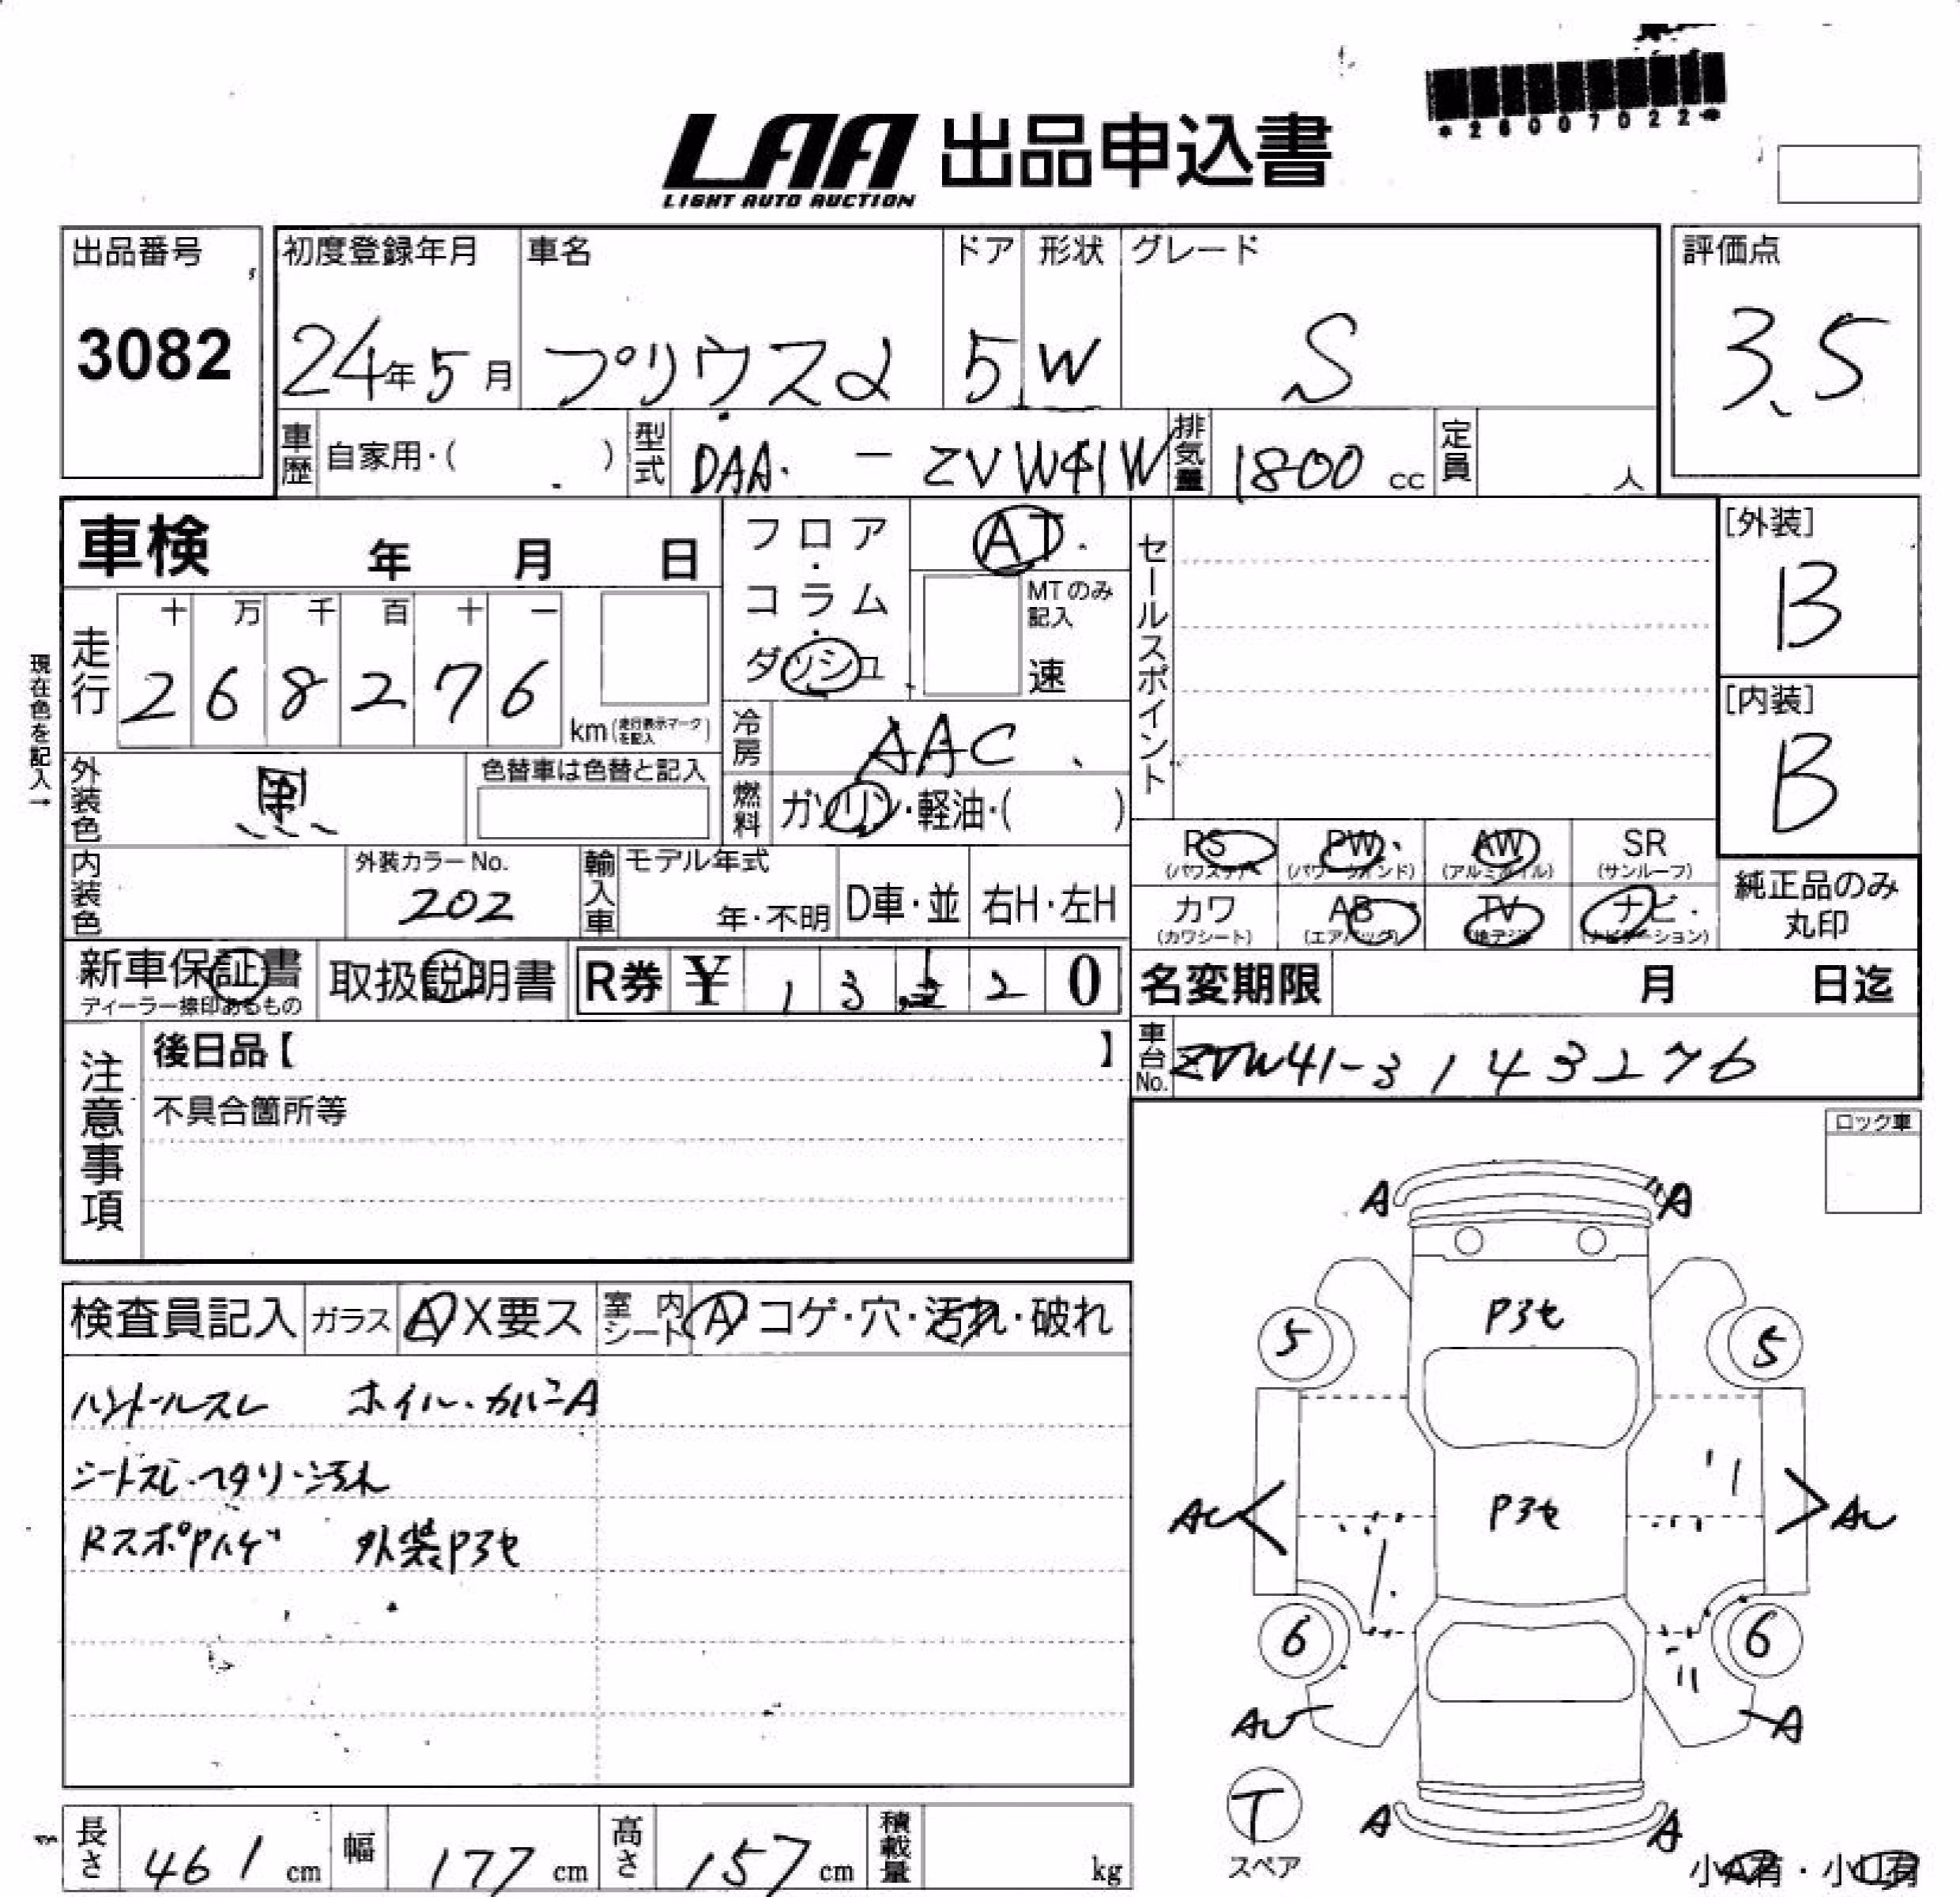 *26007022*
LAA 出品申込書
LIGHT AUTO AUCTION
出品番号 3082
初度登録年月 24年5月
車名 プリウスα
ドア 5
形状 W
グレード S
評価点 3.5
車歴 自家用・( )
型式 DAA - ZVW41W
排気量 1800 cc
定員 人
車検 年 月 日
フロア・コラム・ダッシュ
AT
MTのみ記入 速
セールスポイント
[外装] B
[内装] B
現在色を記入→
走行 十 万 千 百 十 一
2 6 8 2 7 6 km (走行表示マークを記入)
冷房 AAC
外装色 黒
色替車は色替と記入
燃料 ガソリン・軽油・( )
RS (パワステ) PW (パワーウインド) AW (アルミホイル) SR (サンルーフ)
カワ (カワシート) AB (エアバッグ) TV (地デジ) ナビ (ナビゲーション)
純正品のみ丸印
内装色
外装カラーNo. 202
輸入車 モデル年式 年・不明 D車・並 右H・左H
新車保証書 ディーラー捺印あるもの
取扱説明書
R券 ¥ 1 3 2 0
名変期限 月 日迄
車台No. ZVW41-3143276
注意事項
後日品【 】
不具合箇所等
ロック車
検査員記入 ガラス A X要ス 室内シート A・コゲ・穴・汚れ・破れ
ハンドルスレ ホイル・カバーA
シートスレ・ヘタリ・汚れ
RスポPハゲ 外装P3セ
A A
P3セ
5 5
P3セ
AU AU
6 6
AU A
T
スペア
A A
小A有・小U有
長さ 461 cm 幅 177 cm 高さ 157 cm 積載量 kg